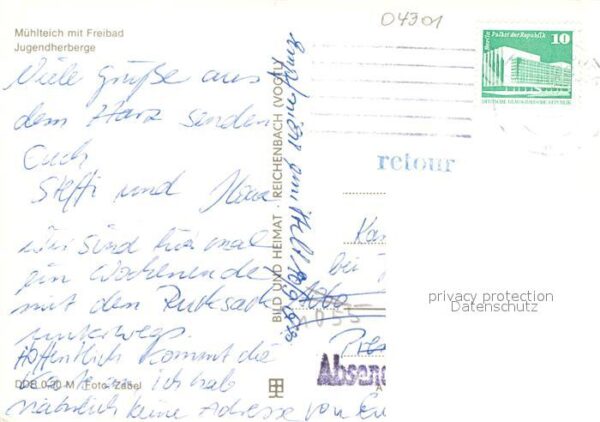 Mühlteich mit Freibad
Jugendherberge
Viele Grüße aus
dem Harz senden
Euch
Steffi und
Wir sind für mal
ein Wochenende
mit dem Rucksack
unterwegs.
Hoffentlich kommt die
Karte an ich hab
natürlich keine Adresse von Eu
DDR 0,20 M Foto: Zabel
BILD UND HEIMAT · REICHENBACH (VOGTL)
04301
Berlin Palast der Republik
10
DEUTSCHE DEMOKRATISCHE REPUBLIK
retour
bei
1055
Absen
privacy protection
Datenschutz